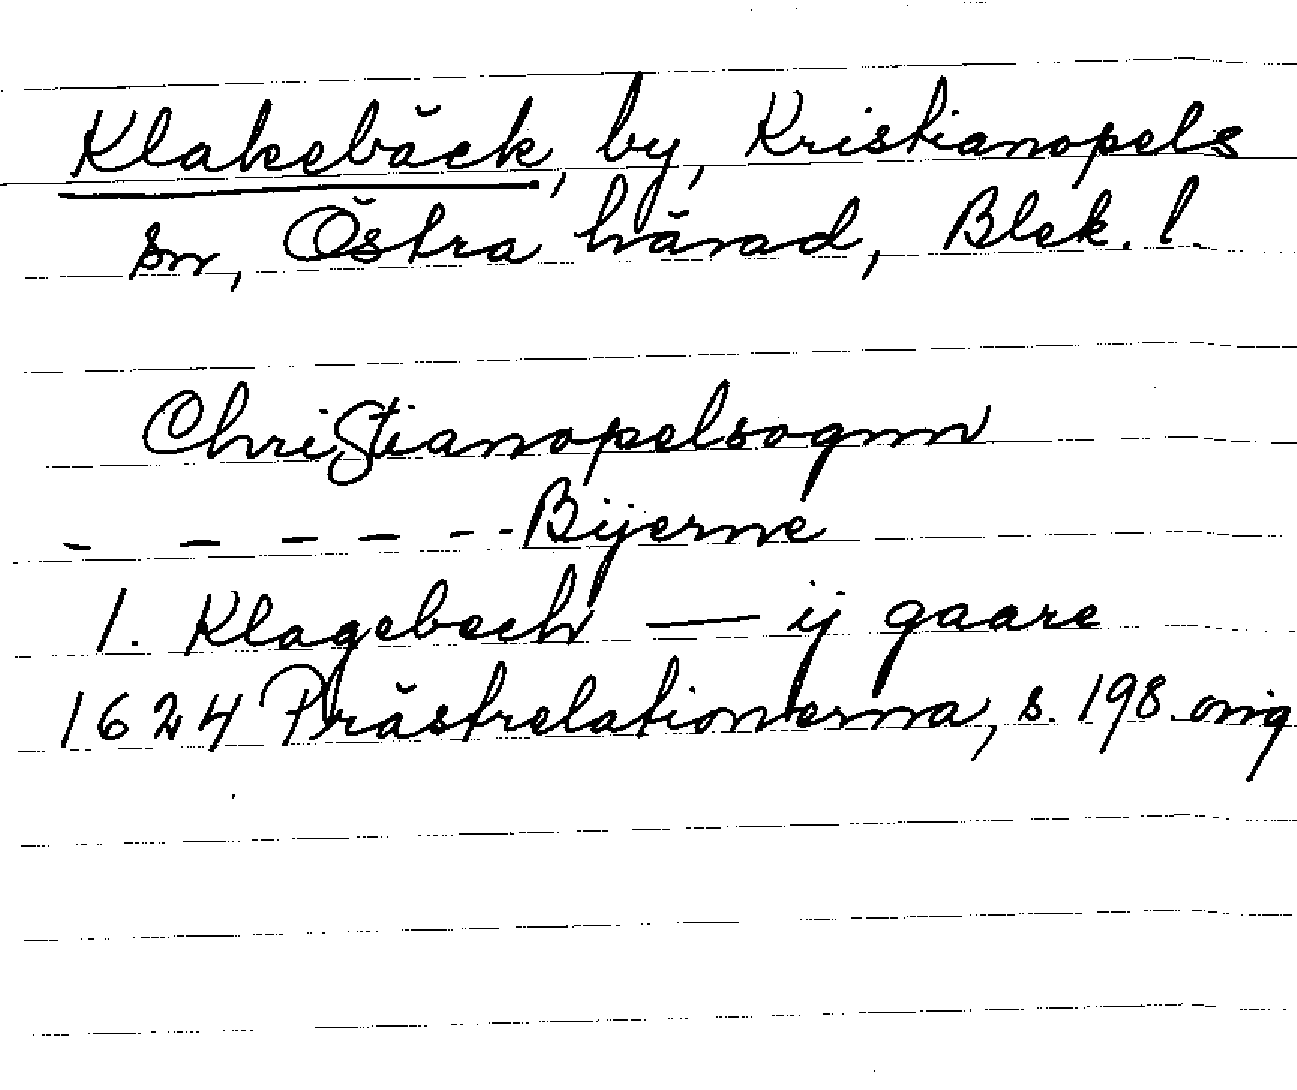 Klakebäck, by, Kristianopels
sn, Östra härad, Blek. l.
Christianopelsognn
- - - - - - Bijerne
1. Klagebech — ij gaare
1624 Prästrelationerna, s. 198 orig